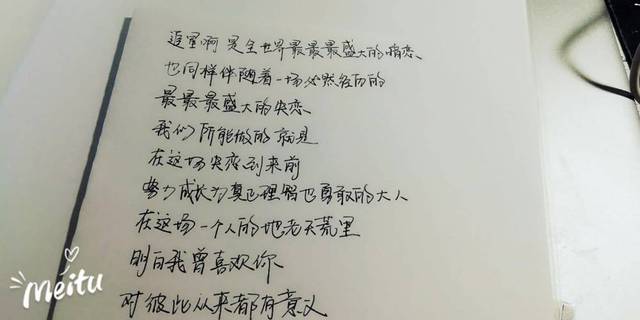 追星啊 是全世界最最最盛大的暗恋
也同样伴随着一场必然经历的
最最最盛大的失恋
我们所能做的就是
在这场失恋到来前
努力成长为真正理智也勇敢的大人
在这场一个人的地老天荒里
明白我曾喜欢你
对彼此从来都有意义
Meitu